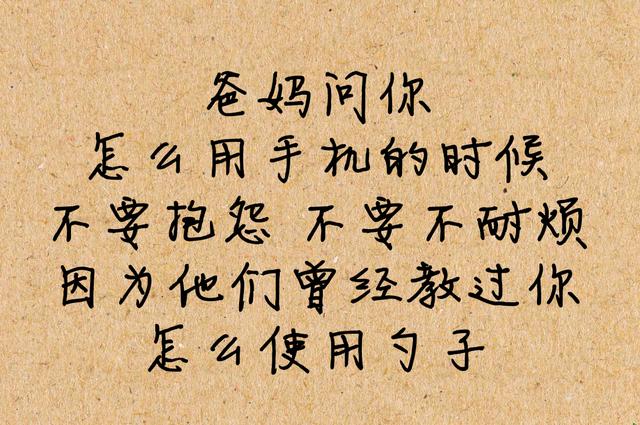 爸妈问你
怎么用手机的时候
不要抱怨 不要不耐烦
因为他们曾经教过你
怎么使用勺子